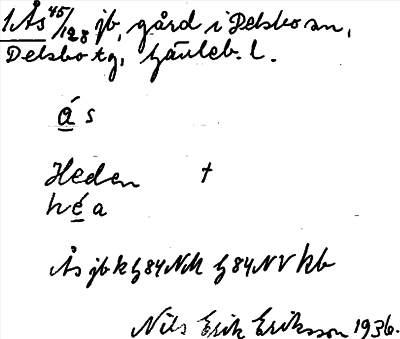 1 Ås 45/128 jb, gård i Delsbo sn,
Delsbo tg, Gävleb. l.
á s
Heden †
héa
Ås jb k G84NM G84NV kb
Nils Erik Eriksson 1936.